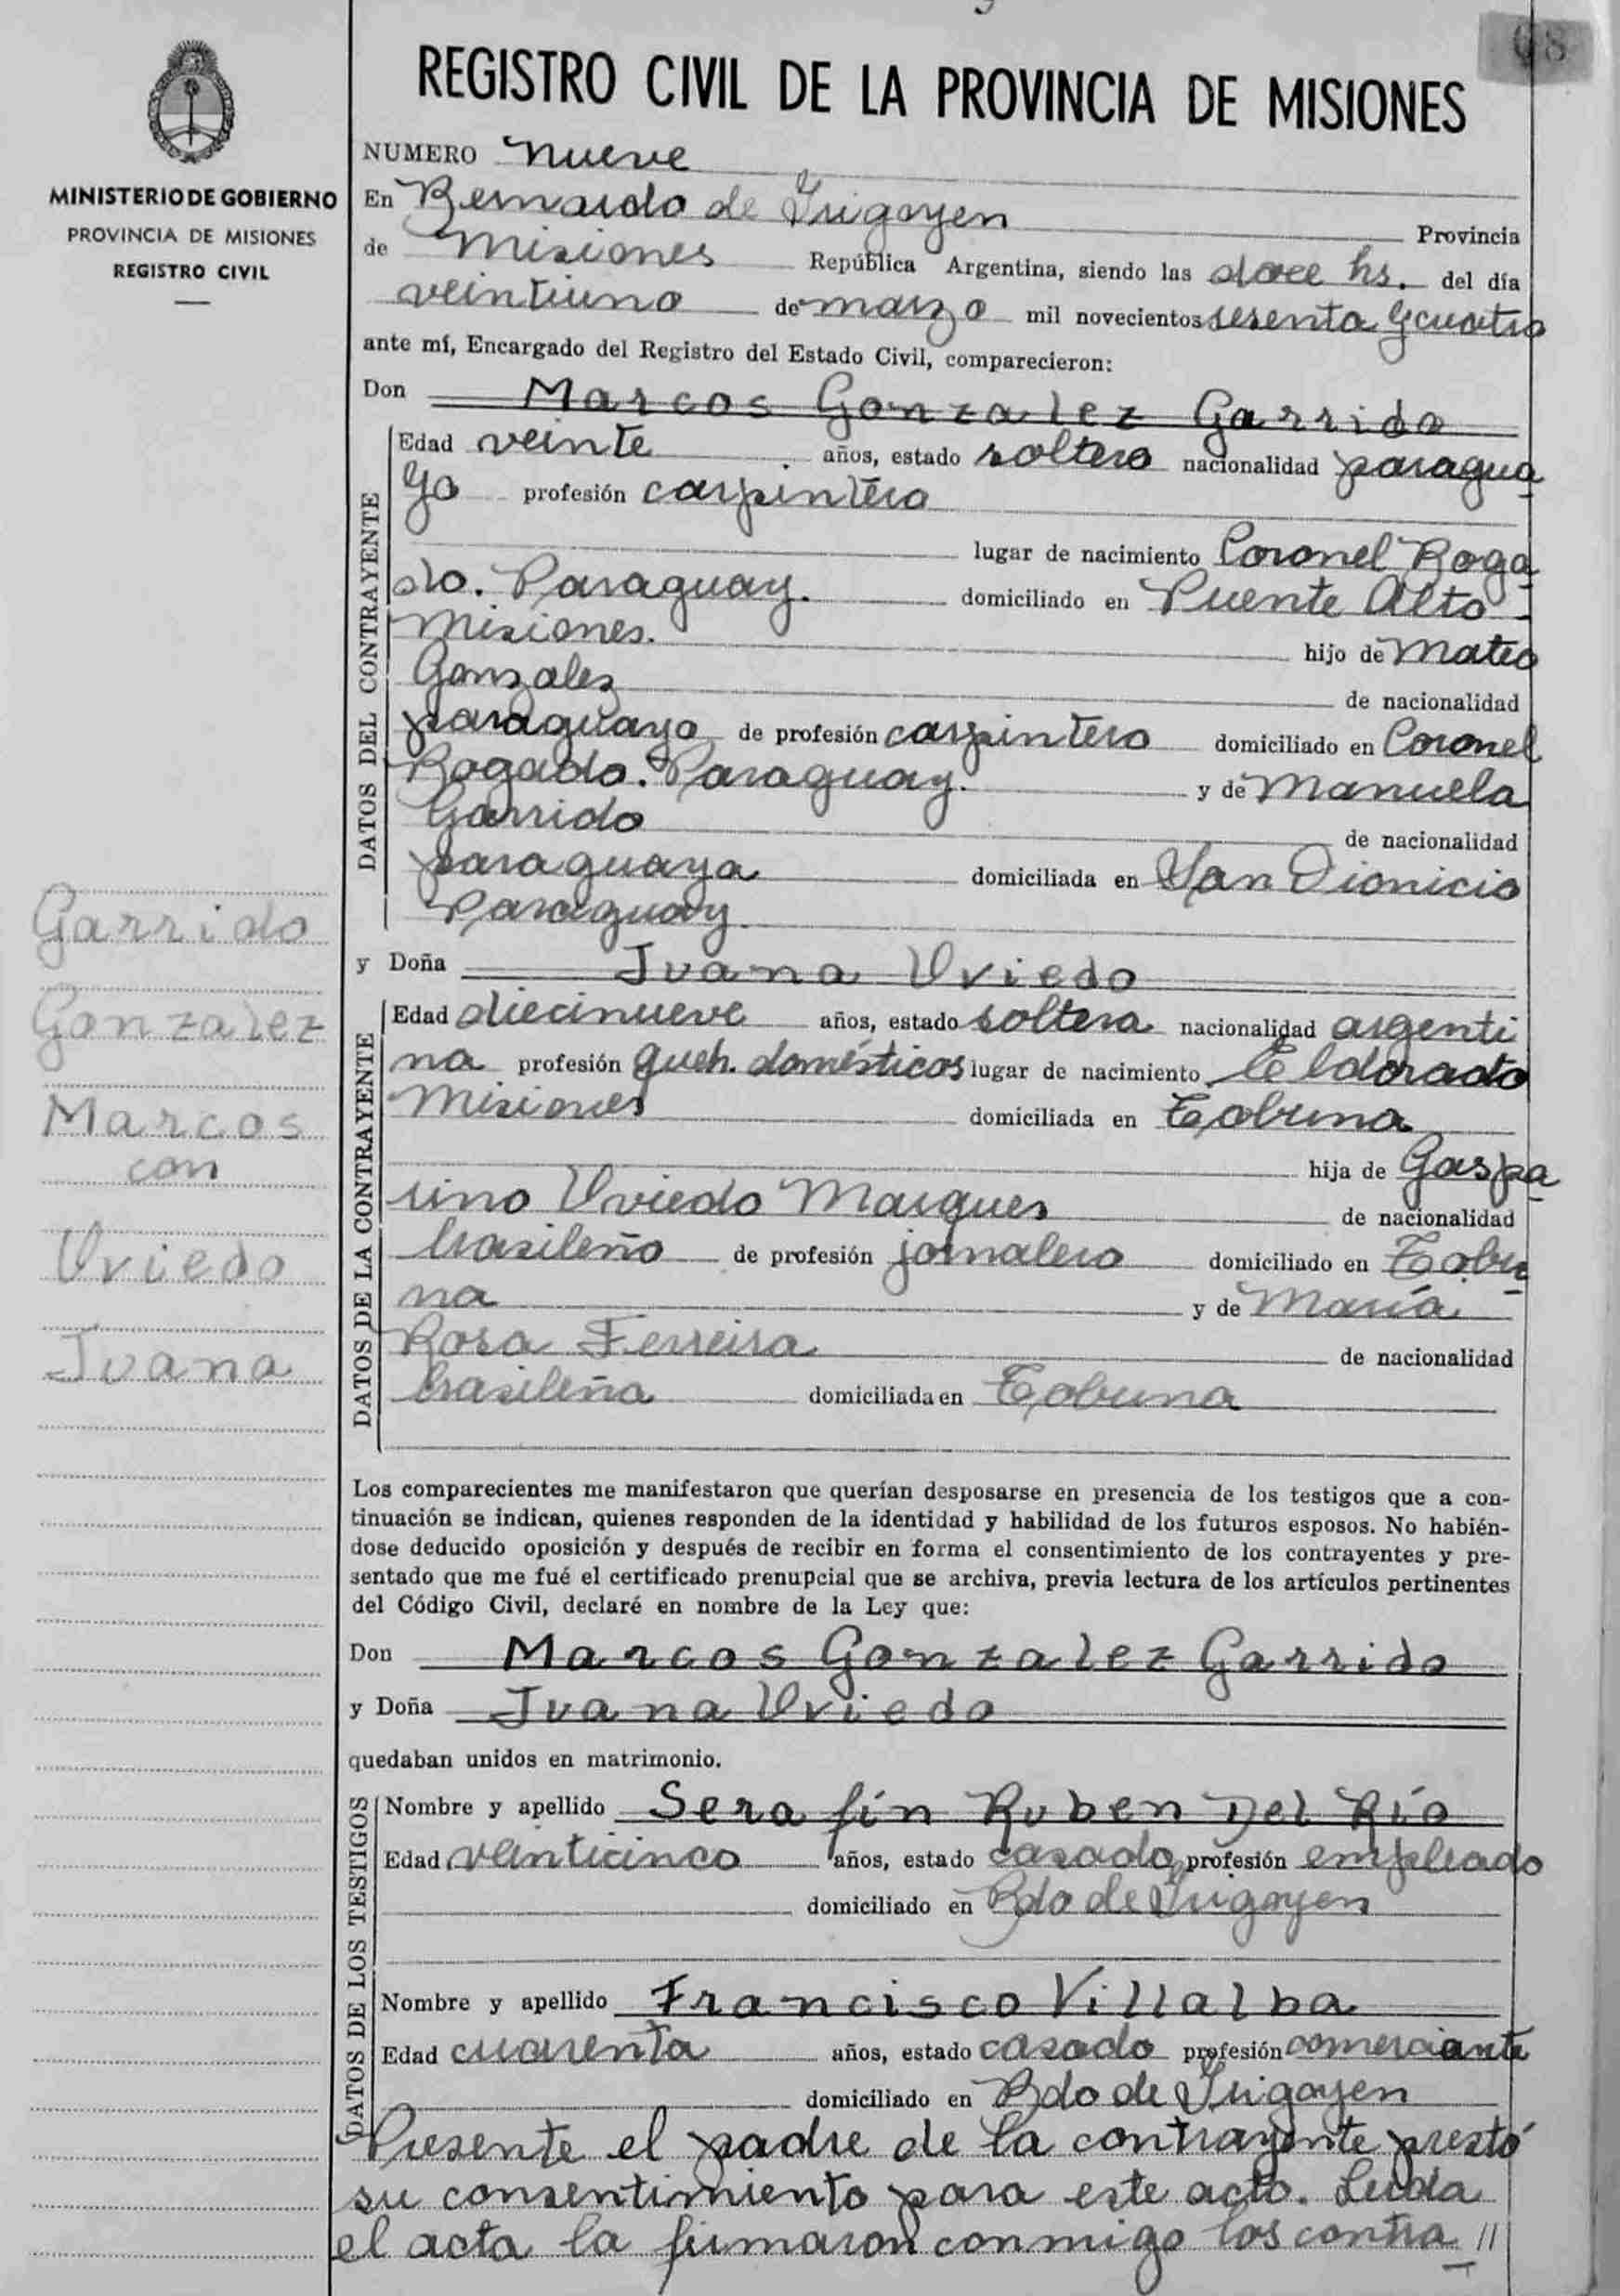 68
REGISTRO CIVIL DE LA PROVINCIA DE MISIONES
MINISTERIO DE GOBIERNO
PROVINCIA DE MISIONES
REGISTRO CIVIL
NUMERO nueve
En Bernardo de Irigoyen Provincia
de Misiones República Argentina, siendo las doce hs. del día
veintiuno de marzo mil novecientos sesenta y cuatro
ante mí, Encargado del Registro del Estado Civil, comparecieron:
Don Marcos Gonzalez Garrido
DATOS DEL CONTRAYENTE
Edad veinte años, estado soltero nacionalidad paragua
yo profesión carpintero
lugar de nacimiento Coronel Boga
do. Paraguay. domiciliado en Puente Alto -
Misiones. hijo de Mateo
Gonzalez de nacionalidad
paraguayo de profesión carpintero domiciliado en Coronel
Bogado. Paraguay. y de Manuela
Garrido de nacionalidad
paraguaya domiciliada en San Dionicio
Paraguay
y Doña Juana Oviedo
DATOS DE LA CONTRAYENTE
Edad diecinueve años, estado soltera nacionalidad argenti
na profesión queh. domésticos lugar de nacimiento Eldorado
Misiones domiciliada en Tobuna
hija de Gaspa
rino Oviedo Marques de nacionalidad
brasileño de profesión jornalero domiciliado en Tobu
na y de María
Rosa Ferreira de nacionalidad
brasileña domiciliada en Tobuna
Garrido
Gonzalez
Marcos
con
Oviedo
Juana
Los comparecientes me manifestaron que querían desposarse en presencia de los testigos que a con-
tinuación se indican, quienes responden de la identidad y habilidad de los futuros esposos. No habién-
dose deducido oposición y después de recibir en forma el consentimiento de los contrayentes y pre-
sentado que me fué el certificado prenupcial que se archiva, previa lectura de los artículos pertinentes
del Código Civil, declaré en nombre de la Ley que:
Don Marcos Gonzalez Garrido
y Doña Juana Oviedo
quedaban unidos en matrimonio.
DATOS DE LOS TESTIGOS
Nombre y apellido Serafín Ruben Del Río
Edad veinticinco años, estado casado profesión empleado
domiciliado en Bdo de Irigoyen
Nombre y apellido Francisco Villalba
Edad cuarenta años, estado casado profesión comerciante
domiciliado en Bdo de Irigoyen
Presente el padre de la contrayente prestó
su consentimiento para este acto. Leida
el acta la firmaron conmigo los contra //